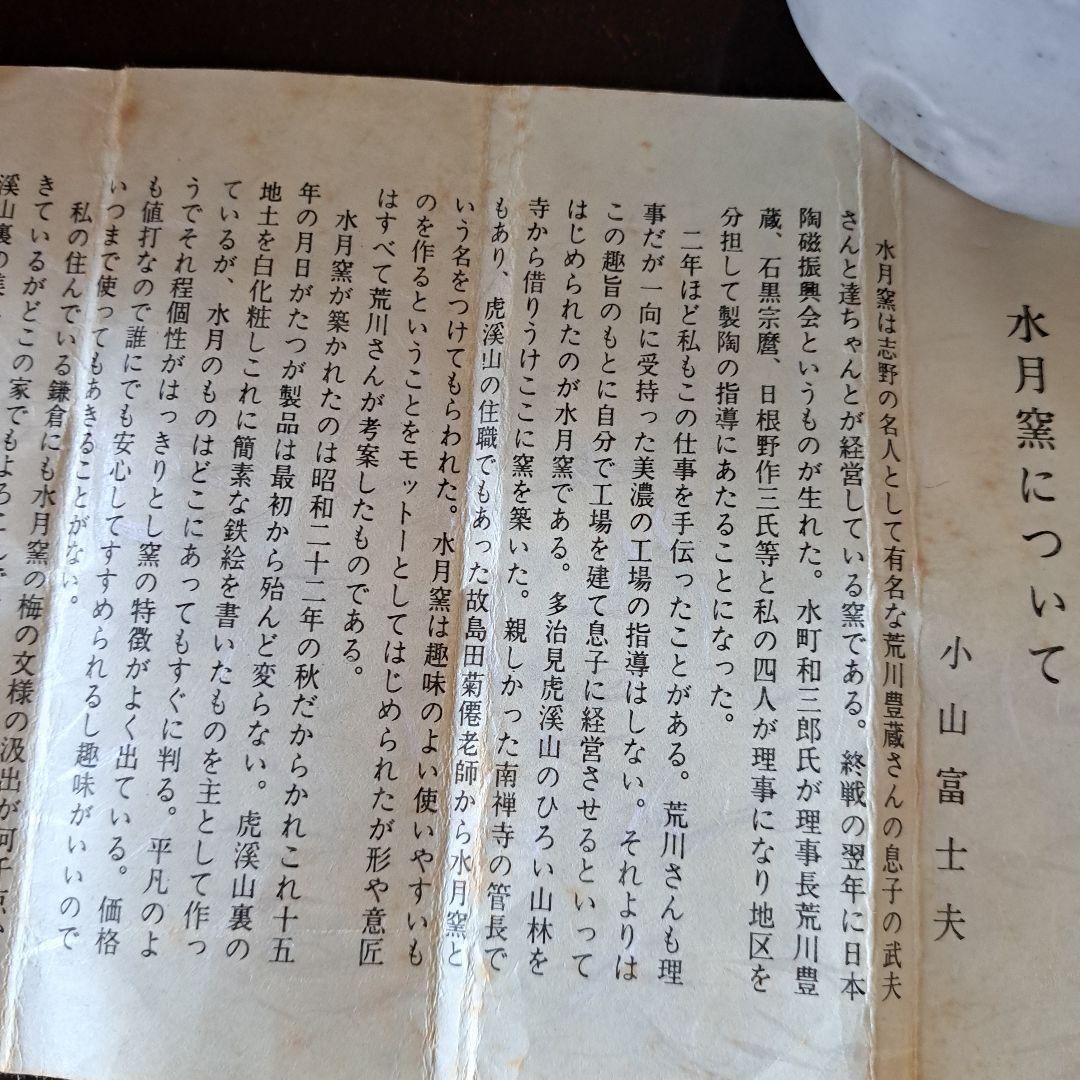 水月窯について
小山富士夫
水月窯は志野の名人として有名な荒川豊蔵さんの息子の武夫
さんと達ちゃんとが経営している窯である。終戦の翌年に日本
陶磁振興会というものが生れた。水町和三郎氏が理事長荒川豊
蔵、石黒宗麿、日根野作三氏等と私の四人が理事になり地区を
分担して製陶の指導にあたることになった。
二年ほど私もこの仕事を手伝ったことがある。荒川さんも理
事だが一向に受持った美濃の工場の指導はしない。それよりは
この趣旨のもとに自分で工場を建て息子に経営させるといって
はじめられたのが水月窯である。多治見虎溪山のひろい山林を
寺から借りうけここに窯を築いた。親しかった南禅寺の管長で
もあり、虎溪山の住職でもあった故島田菊僊老師から水月窯と
いう名をつけてもらわれた。水月窯は趣味のよい使いやすいも
のを作るということをモットーとしてはじめられたが形や意匠
はすべて荒川さんが考案したものである。
水月窯が築かれたのは昭和二十二年の秋だからかれこれ十五
年の月日がたつが製品は最初から殆んど変らない。虎溪山裏の
地土を白化粧しこれに簡素な鉄絵を書いたものを主として作っ
ているが、水月のものはどこにあってもすぐに判る。平凡のよ
うでそれ程個性がはっきりとし窯の特徴がよく出ている。価格
も値打なので誰にでも安心してすすめられるし趣味がいいので
いつまで使ってもあきることがない。
私の住んでいる鎌倉にも水月窯の梅の文様の汲出が何千
きているがどこの家でもよろこんで
溪山裏の